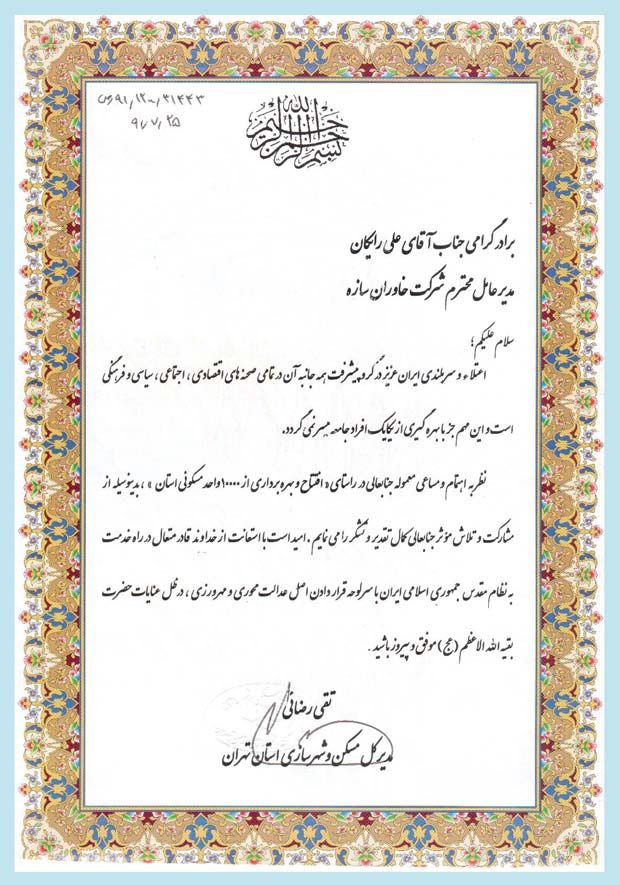 بسم الله الرحمن الرحیم
برادر گرامی جناب آقای علی رایکان
مدیر عامل محترم شرکت خاوران سازه
سلام علیکم ؛
اعتلاء و سربلندی ایران عزیز در گرو پیشرفت همه جانبه آن در تمامی صحنه های اقتصادی ، اجتماعی ، سیاسی و فرهنگی
است و این مهم جز با بهره گیری از یکایک افراد جامعه میسر نمی گردد.
نظر به اهتمام و مساعی معموله جنابعالی در راستای « افتتاح و بهره برداری از ۱۰۰۰۰ واحد مسکونی استان » ، بدینوسیله از
مشارکت و تلاش مؤثر جنابعالی کمال تقدیر و تشکر را می نمایم . امید است با استعانت از خداوند قادر متعال در راه خدمت
به نظام مقدس جمهوری اسلامی ایران با سرلوحه قرار دادن اصل عدالت محوری و مهرورزی ، در ظل عنایات حضرت
بقیه الله الاعظم (عج) موفق و پیروز باشید .
تقی رضائی
مدیر کل مسکن و شهرسازی استان تهران